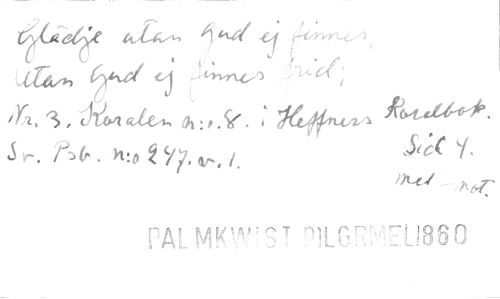 Glädje utan Gud ej finnes,
utan Gud ej finnes frid;
Nr. 3. Koralen n:o 8. i Heffners Koralbok.
Sv. Psb. n:o 247. v. 1.
Sid 4.
mel - not.
PALMKWIST PILGRMEL1860